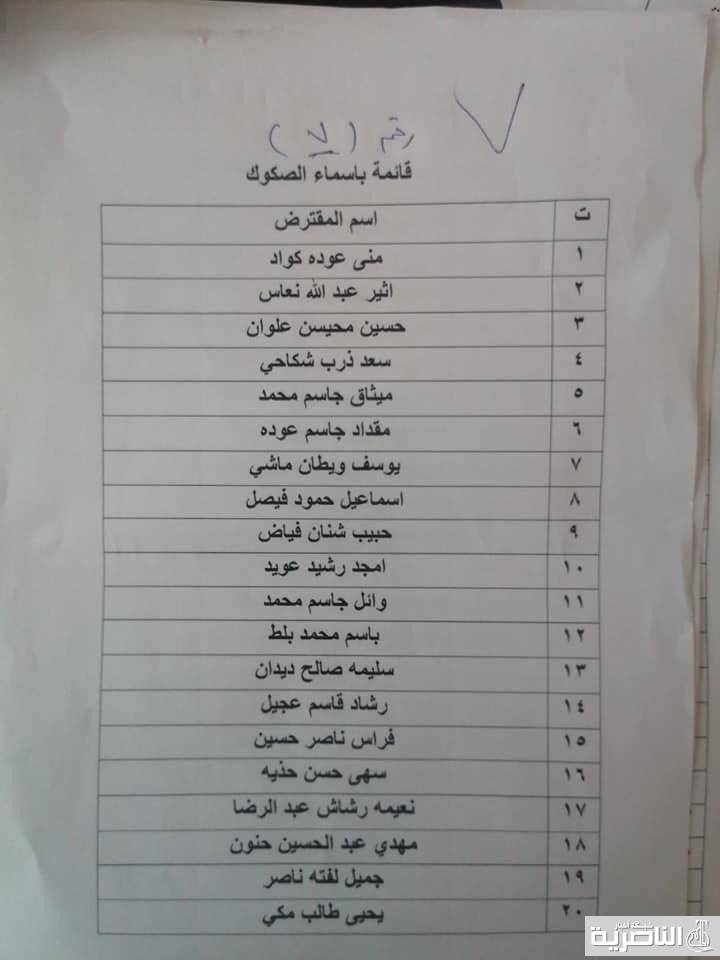 ٧
رقم (٧)
قائمة باسماء الصكوك
ت اسم المقترض
١ منى عوده كواد
٢ اثير عبد الله نعاس
٣ حسين محيسن علوان
٤ سعد ذرب شكاحي
٥ ميثاق جاسم محمد
٦ مقداد جاسم عوده
٧ يوسف ويطان ماشي
٨ اسماعيل حمود فيصل
٩ حبيب شنان فياض
١٠ امجد رشيد عويد
١١ وائل جاسم محمد
١٢ باسم محمد بلط
١٣ سليمه صالح ديدان
١٤ رشاد قاسم عجيل
١٥ فراس ناصر حسين
١٦ سهى حسن حذيه
١٧ نعيمه رشاش عبد الرضا
١٨ مهدي عبد الحسين حنون
١٩ جميل لفته ناصر
٢٠ يحيى طالب مكي
شبكة اخبار
الناصرية